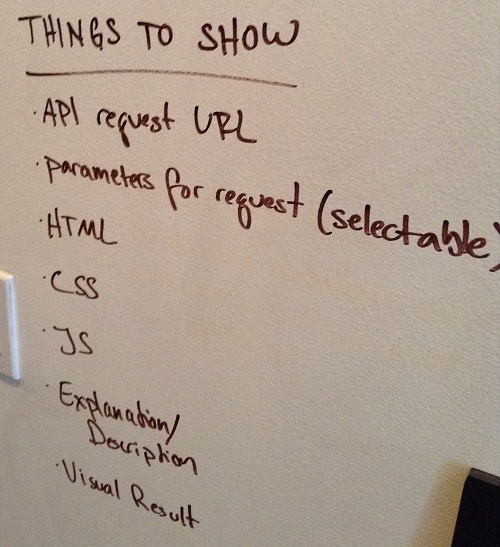 THINGS TO SHOW
· API request URL
· parameters for request (selectable)
· HTML
· CSS
· JS
· Explanation/
Description
· Visual Result